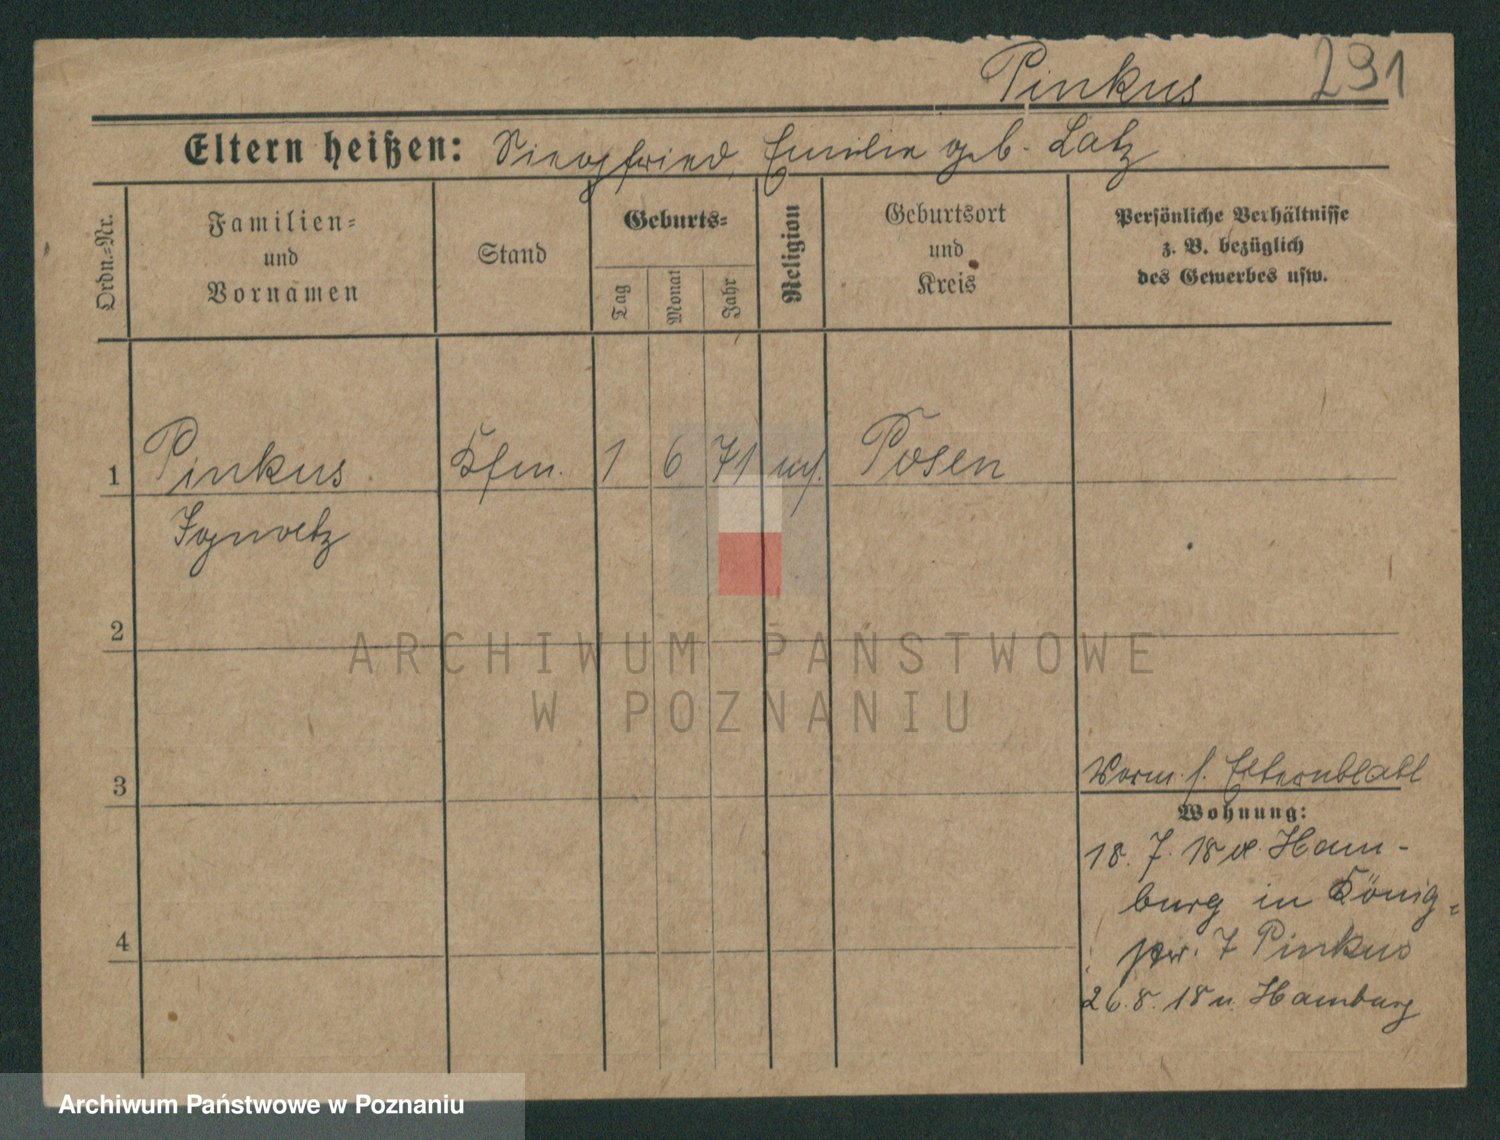 Pinkus 291
Eltern heißen: Siegfried, Emilie geb. Latz
Ordn.-Nr.
Familien=
und
Vornamen
Stand
Geburts=
Tag
Monat
Jahr
Religion
Geburtsort
und
Kreis
Persönliche Verhältnisse
z. B. bezüglich
des Gewerbes usw.
1 Pinkus Kfm. 1 6 71 Posen
Ignatz
2
3
4
Vorm. s. Elternblatt
Wohnung:
18. 7. 18 v. Ham-
burg in König-
26. 8. 18 n. Hamburg
7 Pinkus
ARCHIWUM PAŃSTWOWE
W POZNANIU
Archiwum Państwowe w Poznaniu